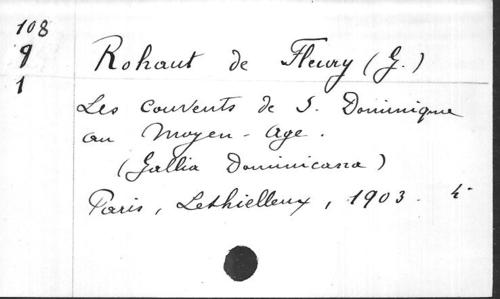 108
9
1
Rohaut de Fleury (G.)
Les couvents de S. Dominique
au Moyen-Age.
(Gallia Dominicana)
Paris, Lethielleux, 1903. 4°